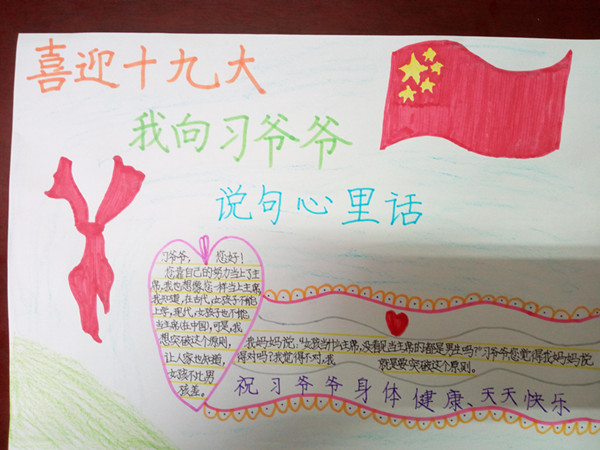 喜迎十九大
我向习爷爷
说句心里话
习爷爷，您好！
您靠自己的努力当上了主
席，我也想像您一样当上主席，
我知道，在古代，女孩子不能
上学，现代，女孩子也不能
当主席(在中国)，可是，我
想突破这个原则，
让人家也知道，
女孩不比男
孩差。
我妈妈说：“女孩当什么主席，没看见当主席的都是男生吗？”习爷爷您觉得我妈妈说
得对吗？我觉得不对，我
就是要突破这个原则。
祝习爷爷身体健康、天天快乐